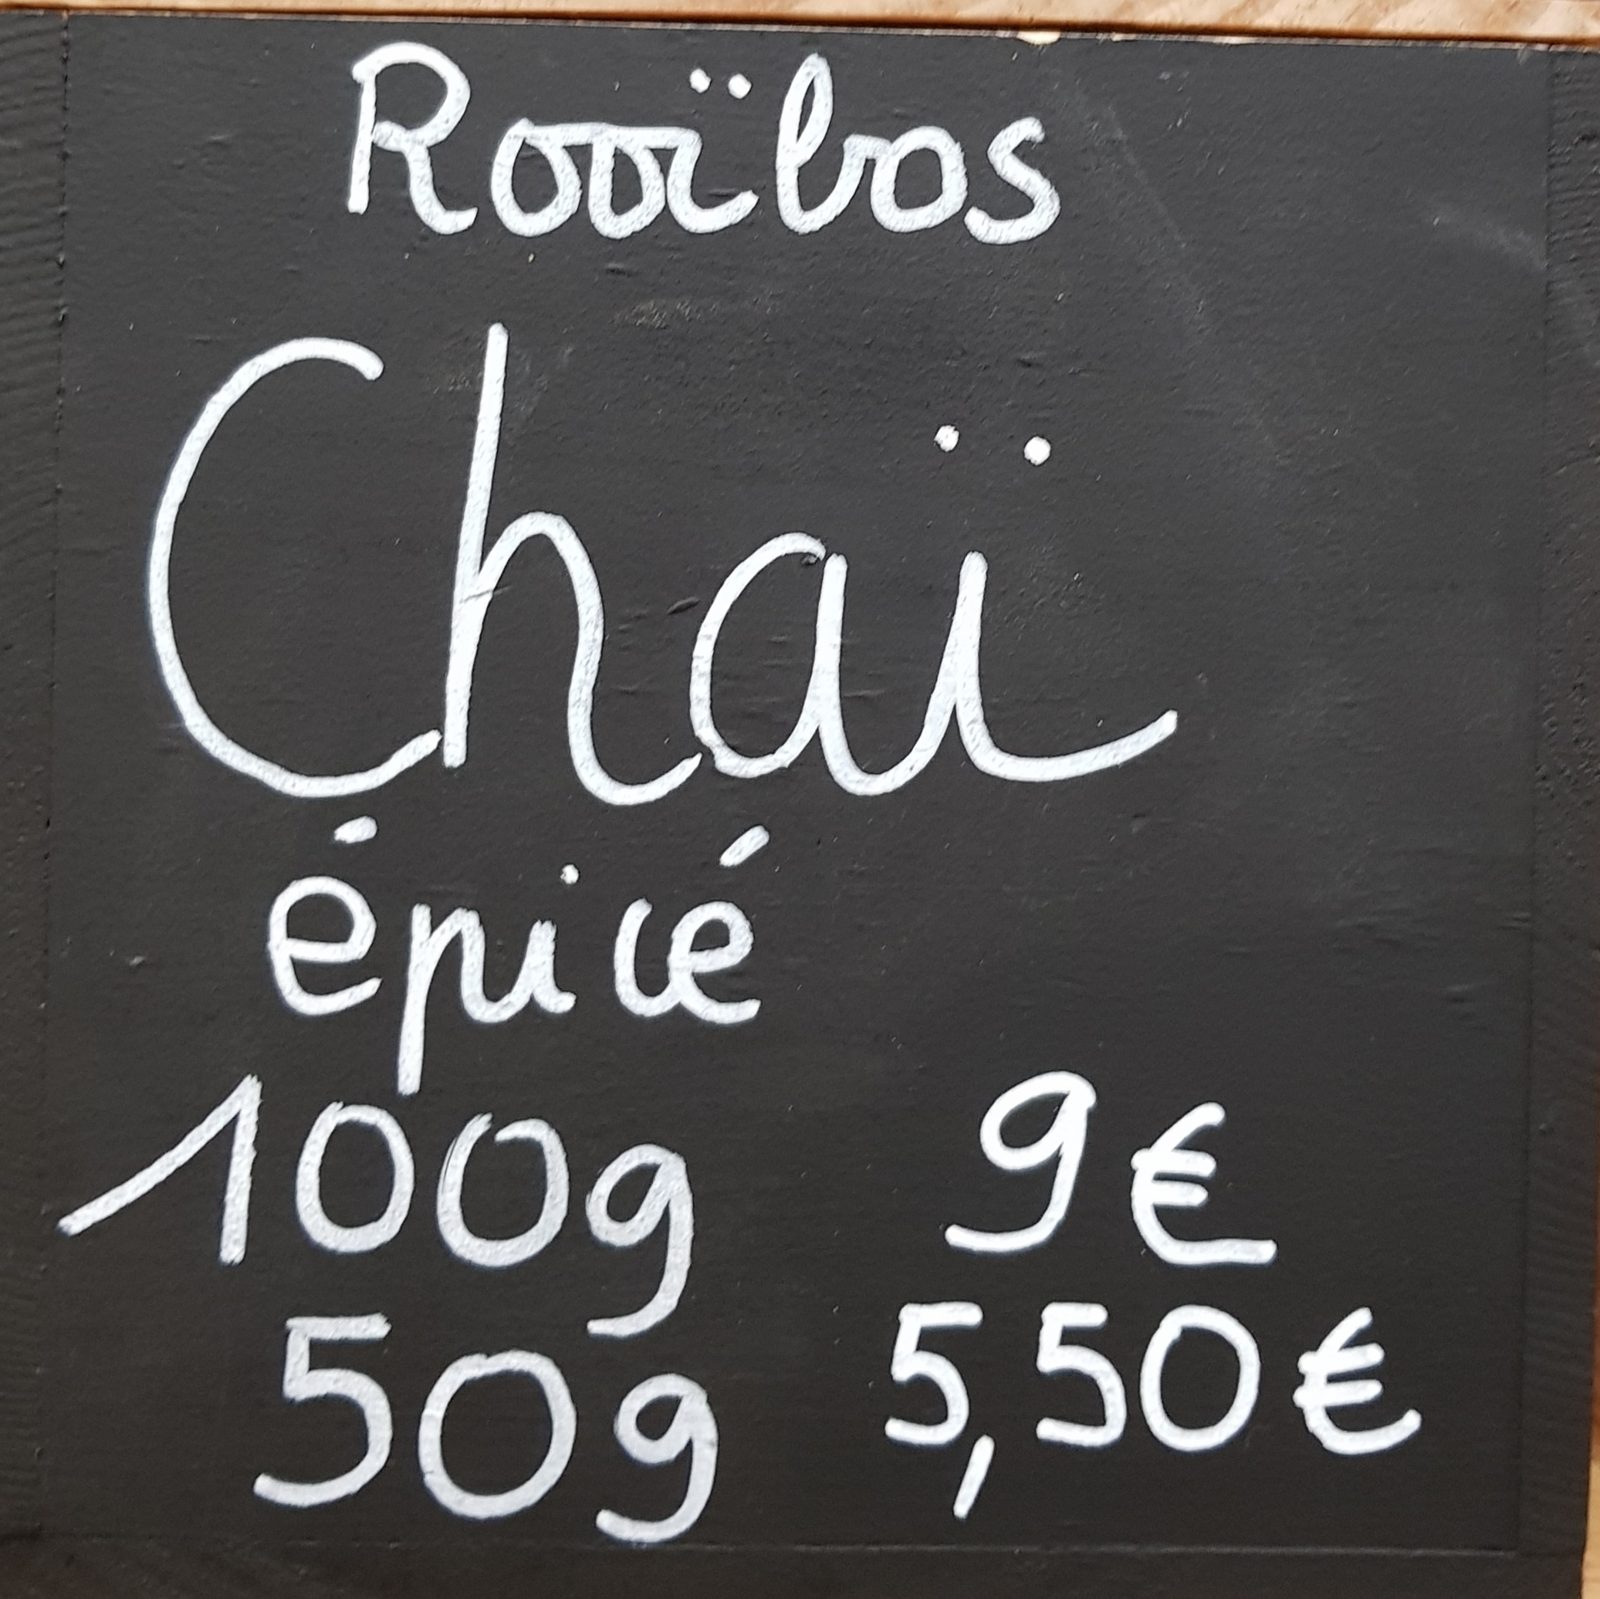 Rooïbos
Chaï
épicé
100g 9€
50g 5,50€